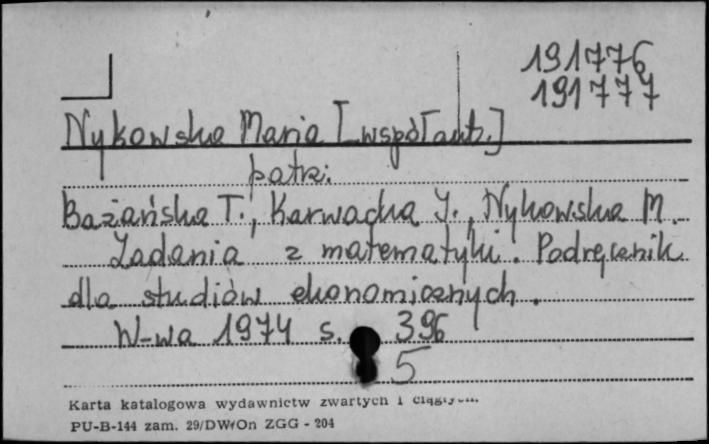 191776
191777
Nykowska Maria [współaut.]
patrz:
Bażańska T., Karwacka J., Nykowska M.
Zadania z matematyki. Podręcznik
dla studiów ekonomicznych.
W-wa 1974 s. 396
5
Karta katalogowa wydawnictw zwartych i ciągłych.
PU-B-144 zam. 29/DW/On ZGG - 204